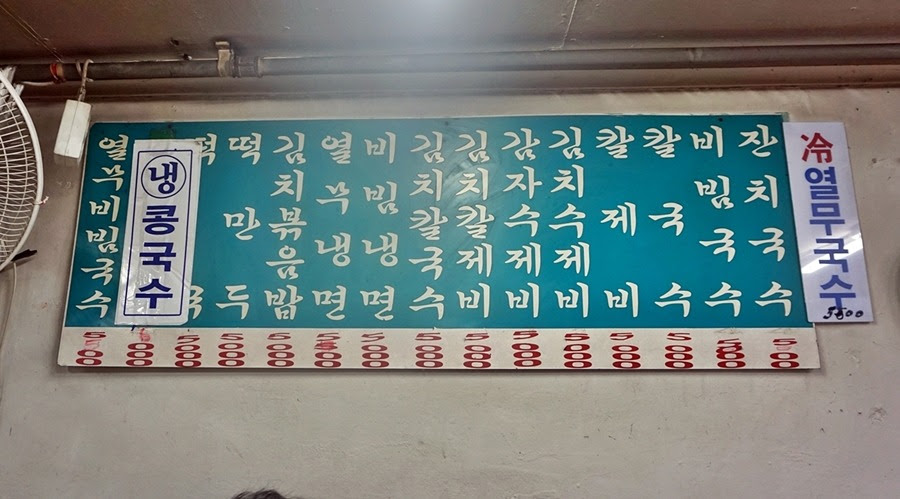 열무비빔국수
냉콩국수
떡국
떡만두
김치볶음밥
열무냉면
비빔냉면
김치칼국수
김치칼제비
감자수제비
김치수제비
칼제비
칼국수
비빔국수
잔치국수
冷열무국수
5000
5000
5000
5000
5000
5000
5000
5000
5000